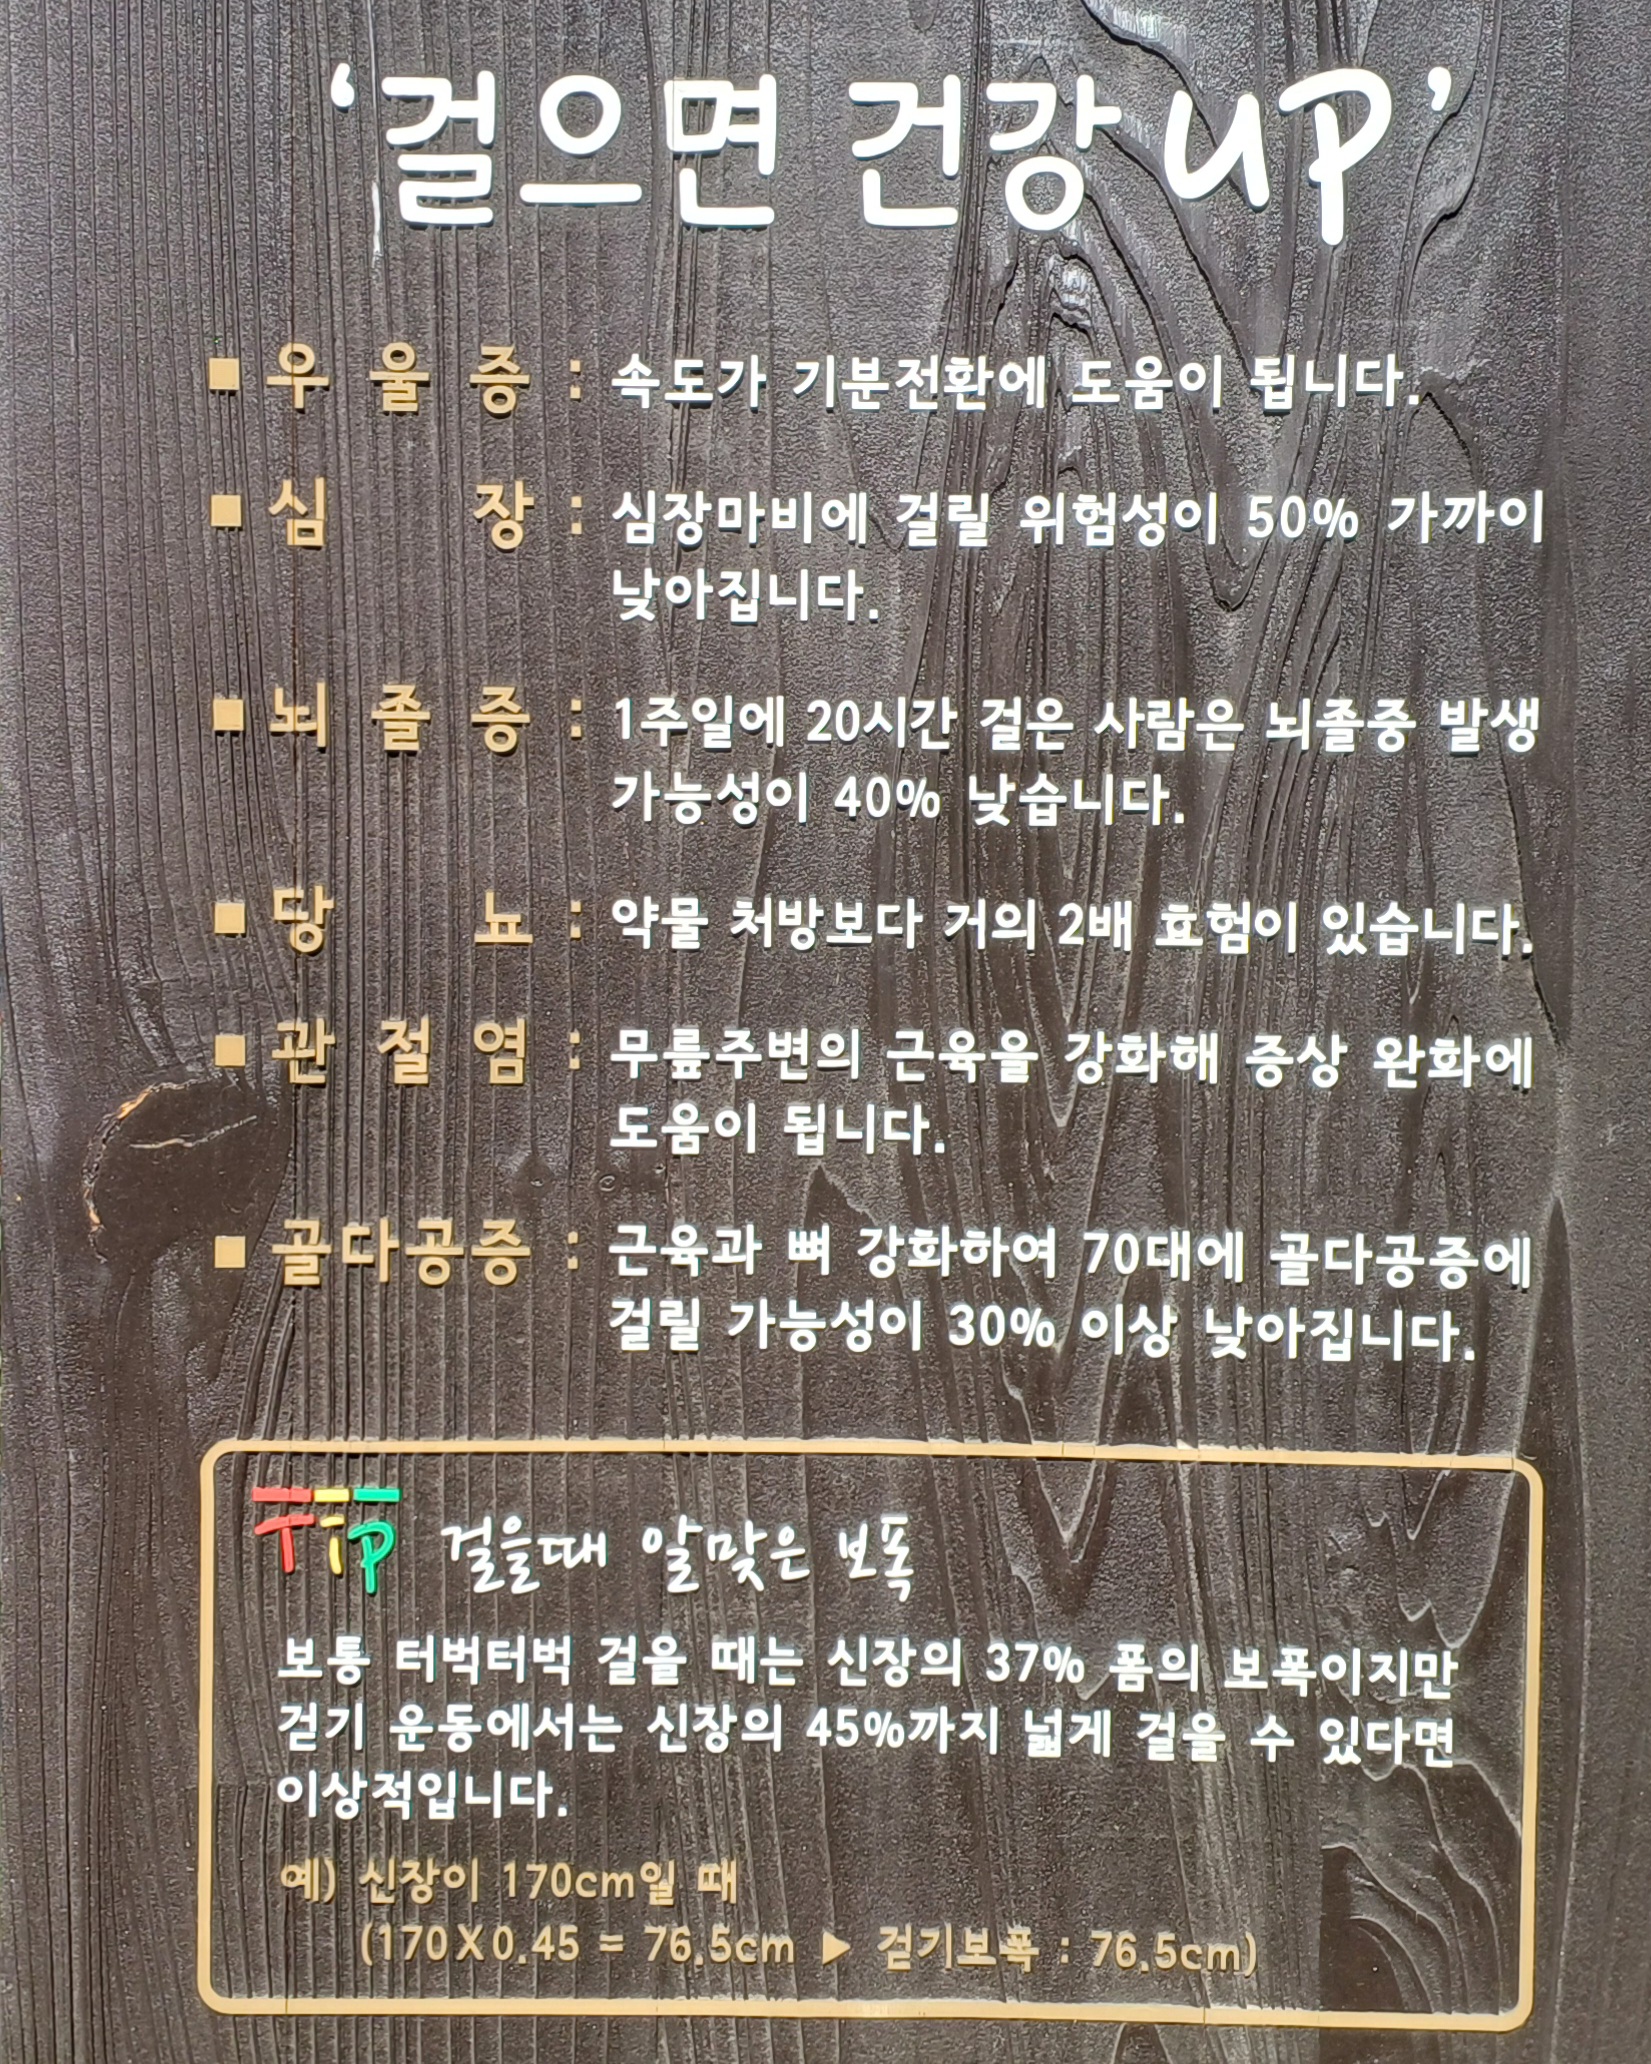 ‘걸으면 건강 UP’
■ 우울증 : 속도가 기분전환에 도움이 됩니다.
■ 심장 : 심장마비에 걸릴 위험성이 50% 가까이
낮아집니다.
■ 뇌졸증 : 1주일에 20시간 걸은 사람은 뇌졸중 발생
가능성이 40% 낮습니다.
■ 당뇨 : 약물 처방보다 거의 2배 효험이 있습니다.
■ 관절염 : 무릎주변의 근육을 강화해 증상 완화에
도움이 됩니다.
■ 골다공증 : 근육과 뼈 강화하여 70대에 골다공증에
걸릴 가능성이 30% 이상 낮아집니다.
TiP 걸을때 알맞은 보폭
보통 터벅터벅 걸을 때는 신장의 37% 폼의 보폭이지만
걷기 운동에서는 신장의 45%까지 넓게 걸을 수 있다면
이상적입니다.
예) 신장이 170cm일 때
(170X0.45 = 76.5cm ▶ 걷기보폭 : 76.5cm)